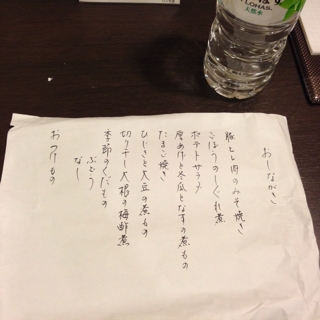 おしながき
豚ヒレ肉のみそ焼き
ごぼうのしぐれ煮
ポテトサラダ
厚あげと冬瓜となすの煮もの
たまご焼き
ひじきと大豆の煮もの
切り干し大根の梅酢煮
季節のくだもの
ぶどう
なし
おつけもの
LOHAS.
天然水